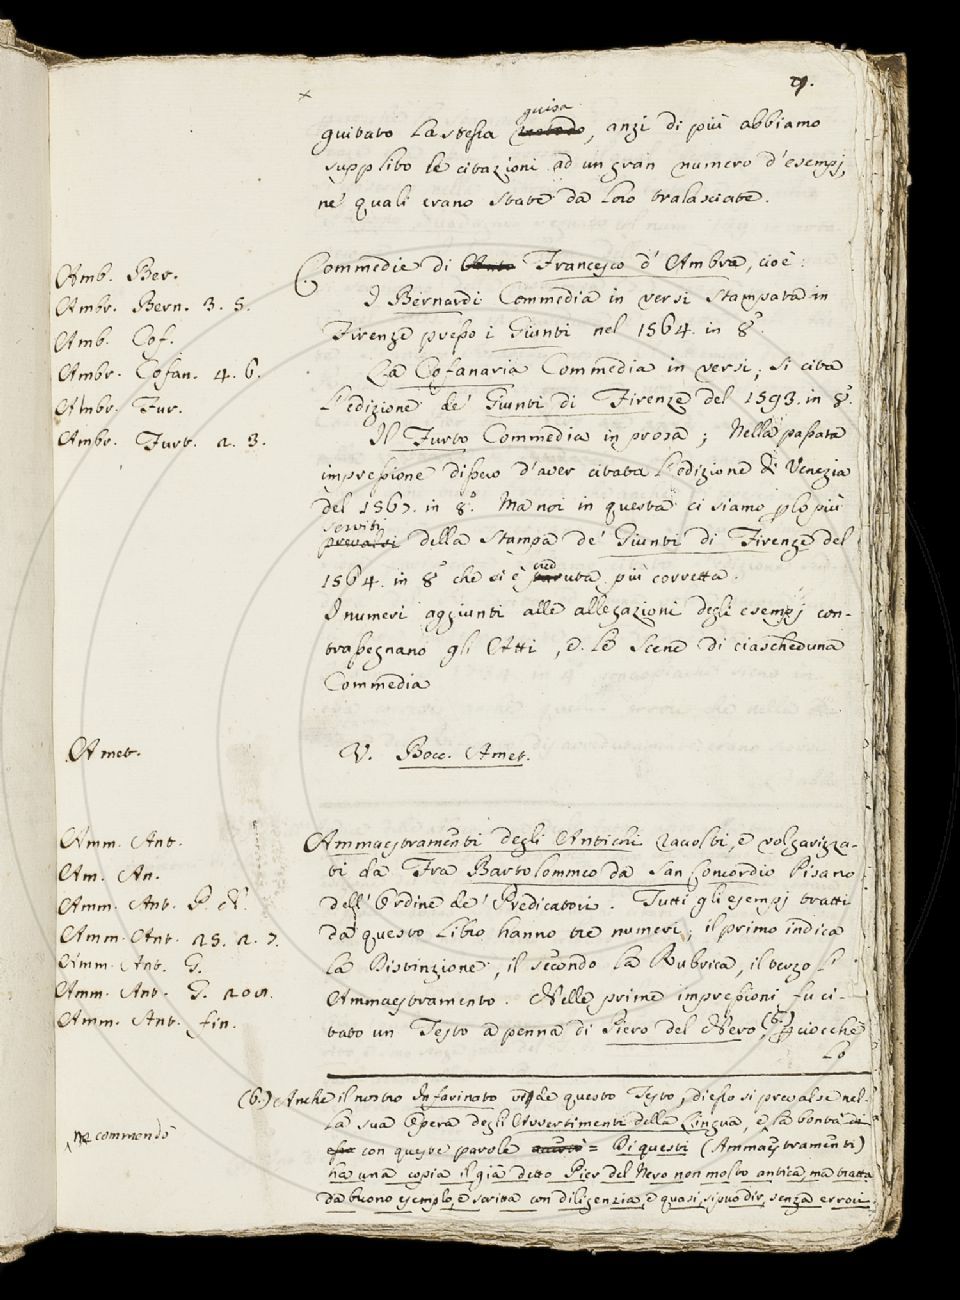 9.
guisa
guitato la stessa metodo, anzi di più abbiamo
supplito le citazioni ad un gran numero d'esempj,
ne' quali erano state da loro tralasciate.
Amb. Ber.
Ambr. Bern. 3. 5.
Amb. Cof.
Ambr. Cofan. 4. 6.
Ambr. Fur.
Ambr. Furt. 2. 3.
Commedie di Francesco d'Ambra, cioè:
I Bernardi Commedia in versi stampata in
Firenze presso i Giunti nel 1564. in 8°.
La Cofanaria Commedia in versi; si cita
l'edizione de' Giunti di Firenze del 1593. in 8°.
Il Furto Commedia in prosa; Nella passata
impressione dissero d'aver citata l'edizione di Venezia
del 1567. in 8°. Ma noi in questa ci siamo plo più
serviti
prevalsi della stampa de' Giunti di Firenze del
1564. in 8° che si è creduta più corretta.
I numeri aggiunti alle allegazioni degli esempj con-
trassegnano gli Atti, e le Scene di ciascheduna
Commedia
Amet.
V. Bocc. Amet.
Amm. Ant.
Am. An.
Amm. Ant. P. N.
Amm. Ant. 25. 2. 7.
Amm. Ant. G.
Amm. Ant. G. 202.
Amm. Ant. fin.
Ammaestramenti degli Antichi racolti, e volgarizza-
ti da Fra Bartolommeo da San Concordio Pisano
dell'Ordine de' Predicatori. Tutti gli esempj tratti
da questo Libro hanno tre numeri; il primo indica
la Distinzione, il secondo la Rubrica, il terzo l'
Ammaestramento. Nelle prime impressioni fu ci-
tato un Testo a penna di Piero del Nero, (6.) pciocchè
lo
(6.) Anche il nostro Infarinato vide questo Testo, di esso si prevalse nel-
la sua Opera degli Avvertimenti della Lingua, e la bontà di
commendò
esso con queste parole = Di questi (Ammaestramenti)
ha una copia il già detto Pier del Nero non molto antica, ma tratta
da buono esemplo, e scritta con diligenzia, e quasi, si può dir, senza errori.